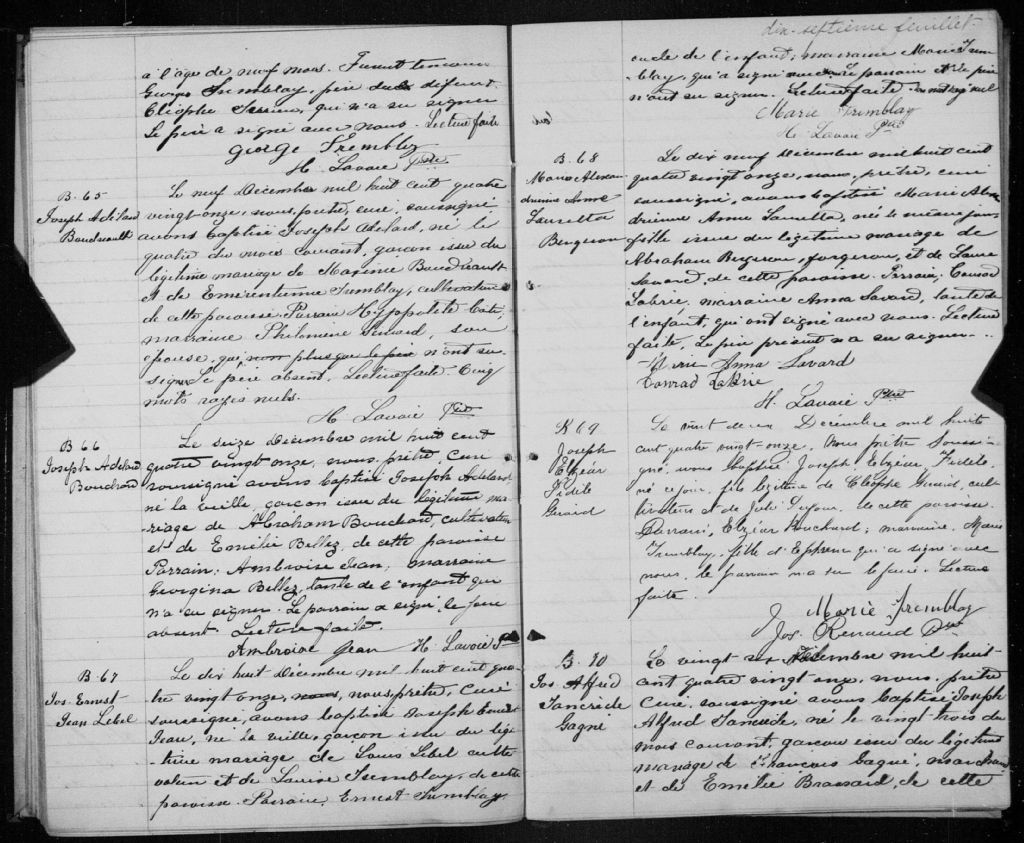 à l'âge de neuf mois. Furent témoins
George Tremblay, père du défunt
Cléophe Simard, qui n'a su signer
Le père a signé avec nous. Lecture faite
George Tremblay
H. Lavoie Ptre
B. 65
Joseph Adélard
Boudreault
Le neuf Décembre mil huit cent quatre
vingt onze, nous, prêtre, curé, soussigné
avons baptisé Joseph Adelard, né le
quatre du mois courant, garçon issu du
légitime mariage de Maxime Boudreault
et de Emérentienne Tremblay, cultivateur
de cette paroisse. Parrain Hyppolite Coté,
marraine Philomène Simard, son
épouse, qui non plus que le père n'ont su
signer Le père absent. Lecture faite. Cinq
mots rayés nuls.
H. Lavoie Ptre
B 66
Joseph Adelard
Bouchard
Le seize Décembre mil huit cent
quatre vingt onze, nous, prêtre, curé
soussigné avons baptisé Joseph Adelard
né la veille, garçon issu du légitime ma-
riage de Abraham Bouchard, cultivateur
et de Emélie Bellez, de cette paroisse
Parrain, Ambroise Jean, marraine
Georgina Bellez, tante de l'enfant qui
n'a su signer. Le parrain a signé, le père
absent. Lecture faite.
Ambroise Jean
H. Lavoie Ptre
B. 67
Jos. Ernest
Jean Lebel
Le dix huit Décembre mil huit cent qua-
tre vingt onze, nous, prêtre, curé
soussigné, avons baptisé Joseph Ernest
Jean, né la veille, garçon issu du légi-
time mariage de Louis Lebel culti-
vateur et de Louise Tremblay, de cette
paroisse. Parrain, Ernest Tremblay
dix-septième feuillet
oncle de l'enfant; marraine Marie Trem-
blay, qui a signé avec nous Le parrain et le père
n'ont su signer. Lecture faite. Un mot rayé nul
Marie Tremblay
H. Lavoie Ptre
B. 68
Marie Alexan
drienne Anne
Lauretta
Bergeron
Le dix neuf Décembre mil huit cent
quatre vingt onze, nous, prêtre, curé
soussigné, avons baptisé Marie Alexan
drienne Anne Lauretta, née le même jour
fille issue du légitime mariage de
Abraham Bergeron, forgeron, et de Laure
Savard, de cette paroisse. Parrain, Conrad
Labrie, marraine Anna Savard, tante de
l'enfant, qui ont signé avec nous. Lecture
faite, Le père présent n'a su signer.
Marie Anna Savard
Conrad Labrie
H. Lavoie Ptre
B 69
Joseph
Elzéar
Fidèle
Girard
Le vingt Décembre mil huit
cent quatre vingt-onze, Nous prêtre soussi-
gné, avons baptisé Joseph Elzéar Fidèle,
né ce jour, fils légitime de Cléophe Girard, cul-
tivateur et de Julie Dufour de cette paroisse.
Parrain, Elzéar Bouchard; marraine, Marie
Tremblay, fille d'Ephrem qui a signé avec
nous, le parrain n'a su le faire. Lecture
faite.
Marie Tremblay
Jos. Renaud Ptre
B. 70
Jos Alfred
Tancrède
Gagné
Le vingt six Décembre mil huit-
cent quatre vingt onze, nous, prêtre
curé, soussigné avons baptisé Joseph
Alfred Tancrède, né le vingt-trois du
mois courant, garçon issu du légitime
mariage de François Gagné, marchand
et de Emélie Brassard, de cette